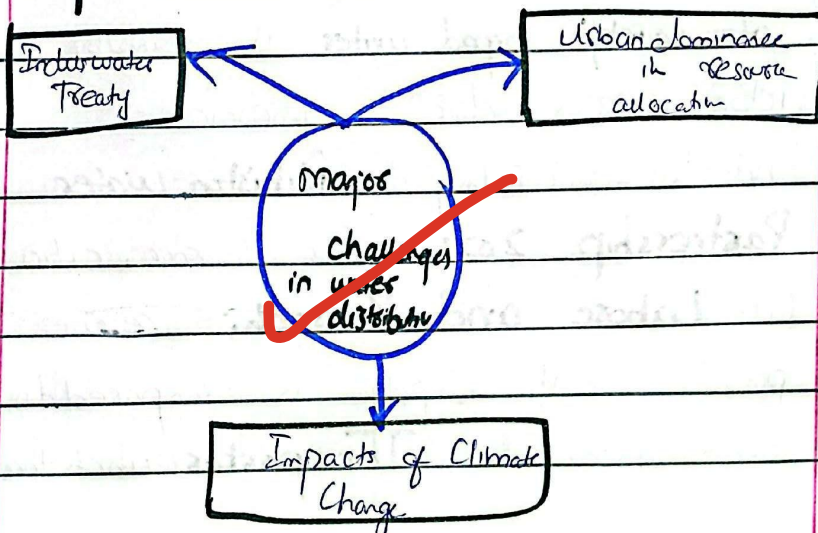 Indus water
Treaty
Urban dominance
in resource
allocation
Major
challenges
in water
distribution
Impacts of Climate
Change